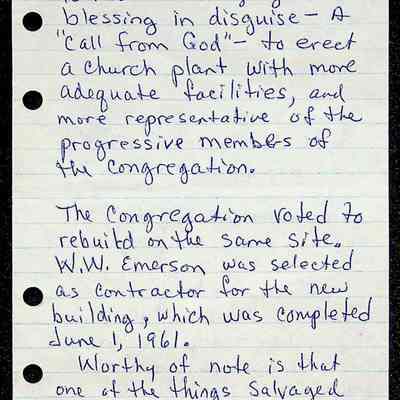 blessing in disguise - A
"Call from God" - to erect
a church plant with more
adequate facilities, and
more representative of the
progressive members of
the congregation.
The Congregation voted to
rebuild on the same site.
W.W. Emerson was selected
as contractor for the new
building, which was completed
June 1, 1961.
Worthy of note is that
one of the things salvaged